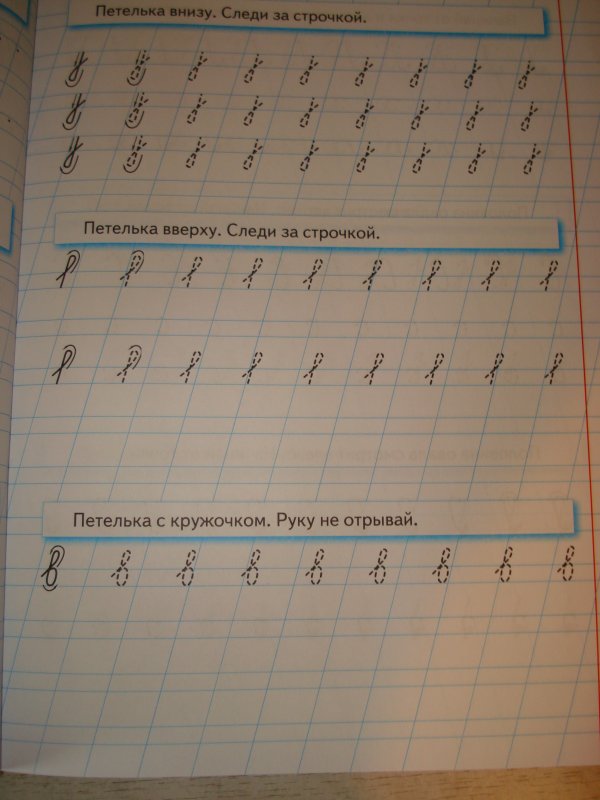 Петелька внизу. Следи за строчкой.
Петелька вверху. Следи за строчкой.
Петелька с кружочком. Руку не отрывай.